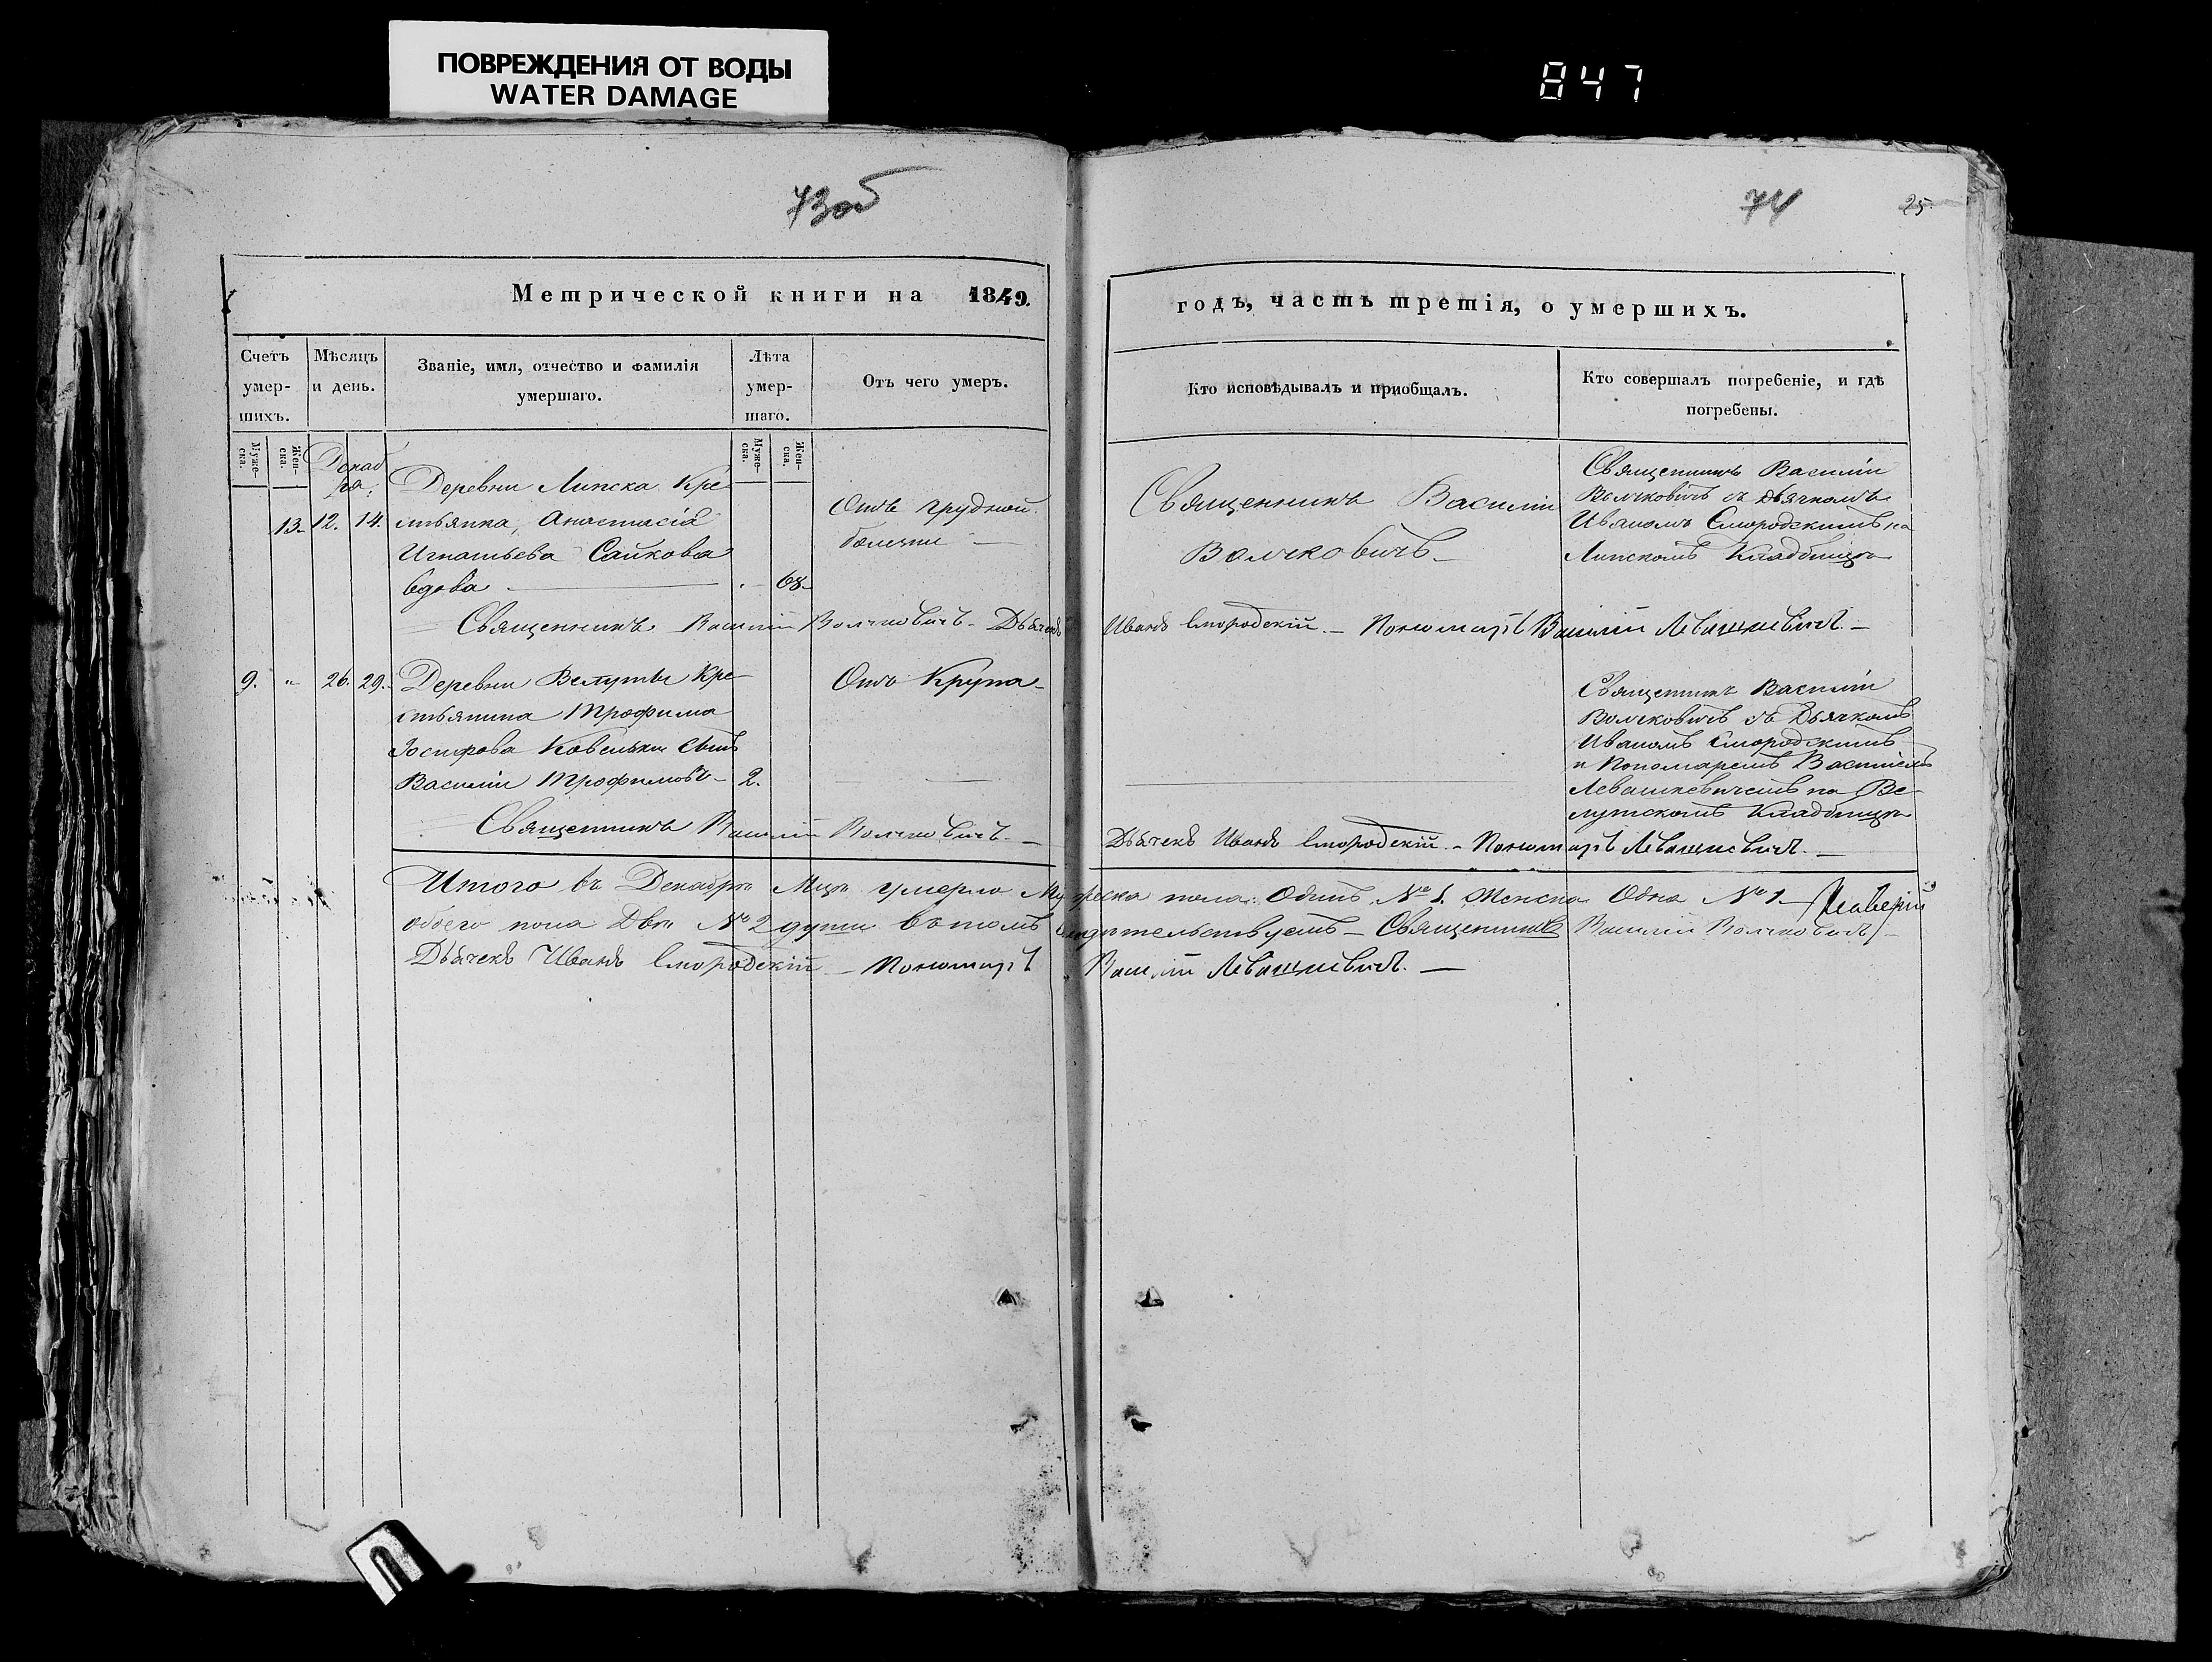 ПОВРЕЖДЕНИЯ ОТ ВОДЫ
WATER DAMAGE
847
73об
74
25
Метрической книги на 1849.
годъ, часть третія, о умершихъ.
Счетъ умер-шихъ.
Мѣсяцъ и день.
Званіе, имя, отчество и фамилія умершаго.
Лѣта умер-шаго.
Отъ чего умеръ.
Кто исповѣдывалъ и приобщалъ.
Кто совершалъ погребеніе, и гдѣ погребены.
Муже-ска.
Жен-ска.
Муже-ска.
Жен-ска.
Декаб
ря:
13. 12. 14.
Деревни Липска Кре
стьянка, Анастасія
Игнатьева Сайкова
вдова
68.
Отъ грудной
болезни
Священникъ Василій
Волчковичъ
Священникъ Василій
Волчковичъ съ Дьячкомъ
Иваномъ Смородскимъ на
Липскомъ Кладбищѣ
Священникъ Василій Волчковичъ - Дьячекъ Иванъ Смородскій. - Пономарь Василій Левашкевичъ. -
9. " 26. 29.
Деревни Велуты Кре-
стьянина Трофима
Іосифова Ковельки сынъ
Василій Трофимовъ - 2.
Отъ Крупа -
Священникъ Василій
Волчковичъ съ Дьячкомъ
Иваномъ Смородскимъ
и Пономаремъ Василіемъ
Левашкевичемъ на Ве-
лутскомъ Кладбищѣ
Священникъ Василій Волчковичъ. -
Дьячекъ Иванъ Смородскій. - Пономарь Левашкевичъ. -
Итого въ Декабрѣ Мцѣ умерло Мужеска пола: Одинъ № 1. Женска Одна № 1 -
обоего пола Двѣ № 2 души въ томъ свидѣтельствуемъ - Священникъ Василій Волчковичъ
Дьячекъ Иванъ Смородскій - Пономарь Василій Левашкевичъ. -